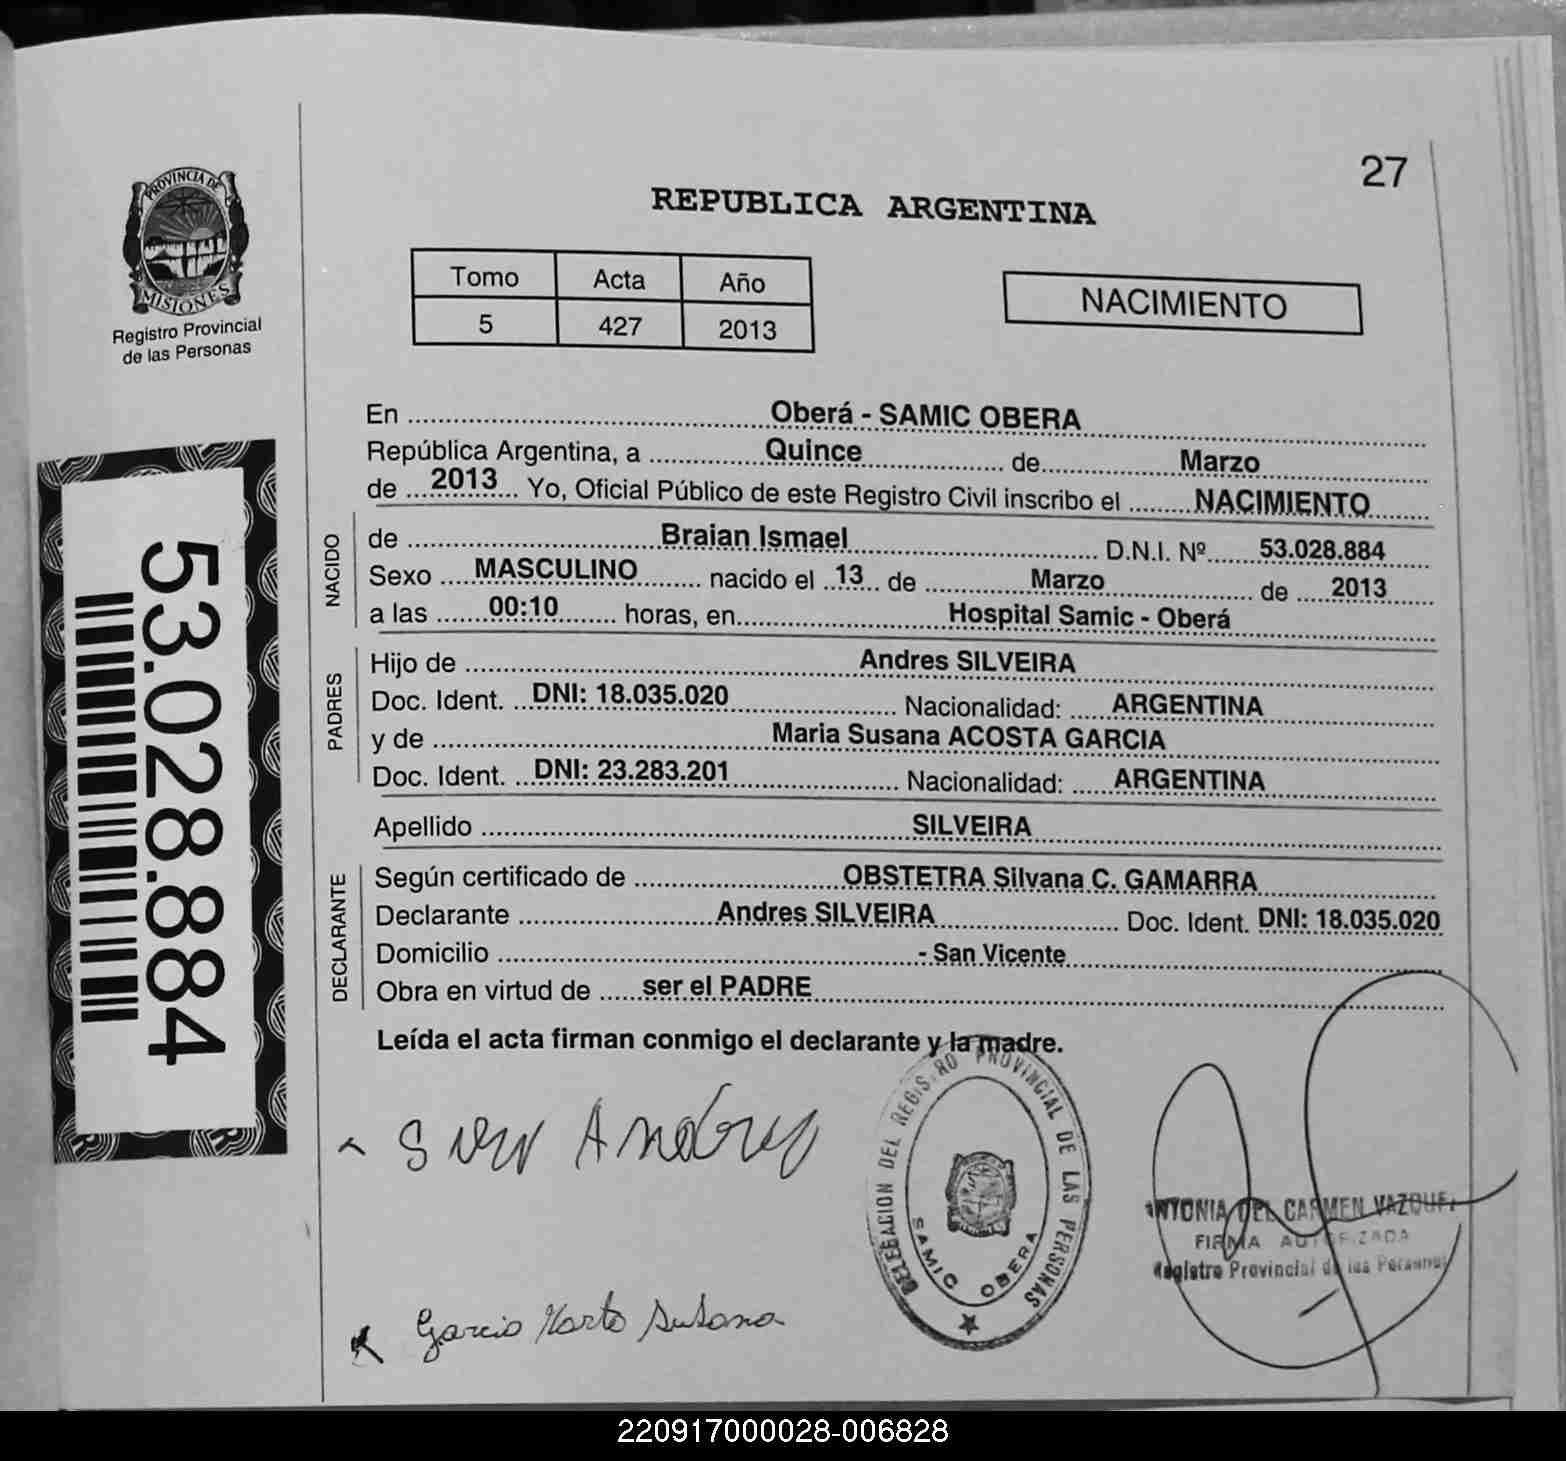 27
PROVINCIA DE
MISIONES
Registro Provincial
de las Personas
REPUBLICA ARGENTINA
Tomo Acta Año
5 427 2013
NACIMIENTO
53.028.884
En Oberá - SAMIC OBERA
República Argentina, a Quince de Marzo
de 2013 Yo, Oficial Público de este Registro Civil inscribo el NACIMIENTO
NACIDO
de Braian Ismael D.N.I. Nº 53.028.884
Sexo MASCULINO nacido el 13 de Marzo de 2013
a las 00:10 horas, en Hospital Samic - Oberá
PADRES
Hijo de Andres SILVEIRA
Doc. Ident. DNI: 18.035.020 Nacionalidad: ARGENTINA
y de Maria Susana ACOSTA GARCIA
Doc. Ident. DNI: 23.283.201 Nacionalidad: ARGENTINA
Apellido SILVEIRA
DECLARANTE
Según certificado de OBSTETRA Silvana C. GAMARRA
Declarante Andres SILVEIRA Doc. Ident. DNI: 18.035.020
Domicilio - San Vicente
Obra en virtud de ser el PADRE
Leída el acta firman conmigo el declarante y la madre.
DELEGACION DEL REGISTRO PROVINCIAL DE LAS PERSONAS
SAMIC OBERA
DEL CARMEN
FIRMA AUTORIZADA
Registro Provincial de las Personas
Susana
220917000028-006828